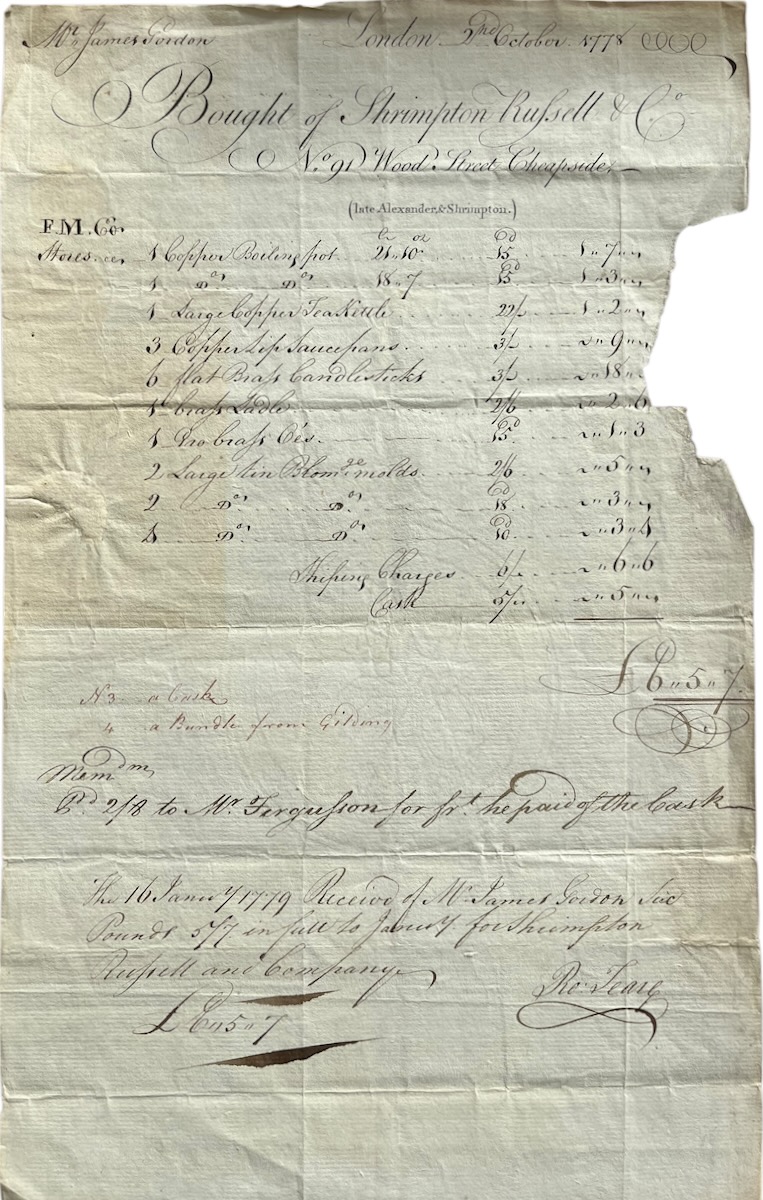 Mr. James Gordon London 2nd October 1778
Bought of Shrimpton Russell & Co
No. 91 Wood Street Cheapside
(late Alexander & Shrimpton.)
F.M.Co.
Stores 1 Copper Boiling pot 21 " 10 15d 1 " 7 "
1 Do. Do. 18 " 7 15d 1 " 3 "
1 Large Copper Tea Kettle 22/ 1 " 2 "
3 Copper Lip Saucepans 3/ " 9 "
6 flat Brass Candlesticks 3/ " 18 "
1 brass Ladle 2/6 " 2 " 6
1 brass 15d " 1 " 3
2 Large tin molds 2/6 " 5 "
2 Do. Do. 18d " 3 "
4 Do. Do. 10d " 3 " 4
Shiping Charges 6/ " 6 " 6
Cask 5/ " 5 "
£6 " 5 " 7
No 3 a Cask
4 a Bundle from Gilding
Memdm
Pd 2/8 to Mr. Fergusson for frt. he paid of the Cask
The 16 Janury 1779 Receivd of Mr James Gordon Six
Pounds 5/7 in full to Janury for Shrimpton
Russell and Company
Ro. Teare
£6 " 5 " 7